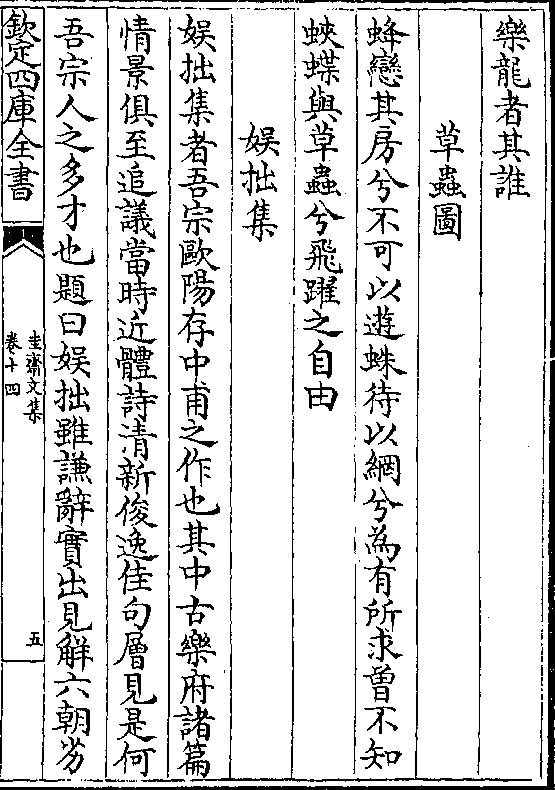 樂龍者其誰
草蟲圖
蜂戀其房兮不可以遊蛛待以網兮為有所求曽不知
蛺蝶與草蟲兮飛躍之自由
娛拙集
娛拙集者吾宗歐陽存中甫之作也其中古樂府諸篇
情景俱至追議當時近體詩清新俊逸佳句層見是何
吾宗人之多才也題曰娛拙雖謙辭實出見解六朝劣
欽定四庫全書
圭齋文集
卷十四
五